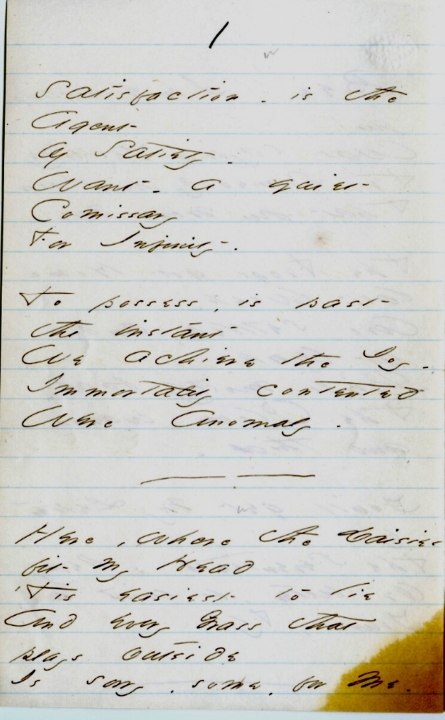 1
Satisfaction - is the
Agent
of Satiety -
Want - a quiet
Comissary
For Infinity -
To possess, is past
the instant
We achieve the Joy -
Immortality contented
Were Anomaly -
Here, where the Daisies
fit my Head
'Tis easiest to lie
And every Grass that
plays outside
Is sorry, some, for me.